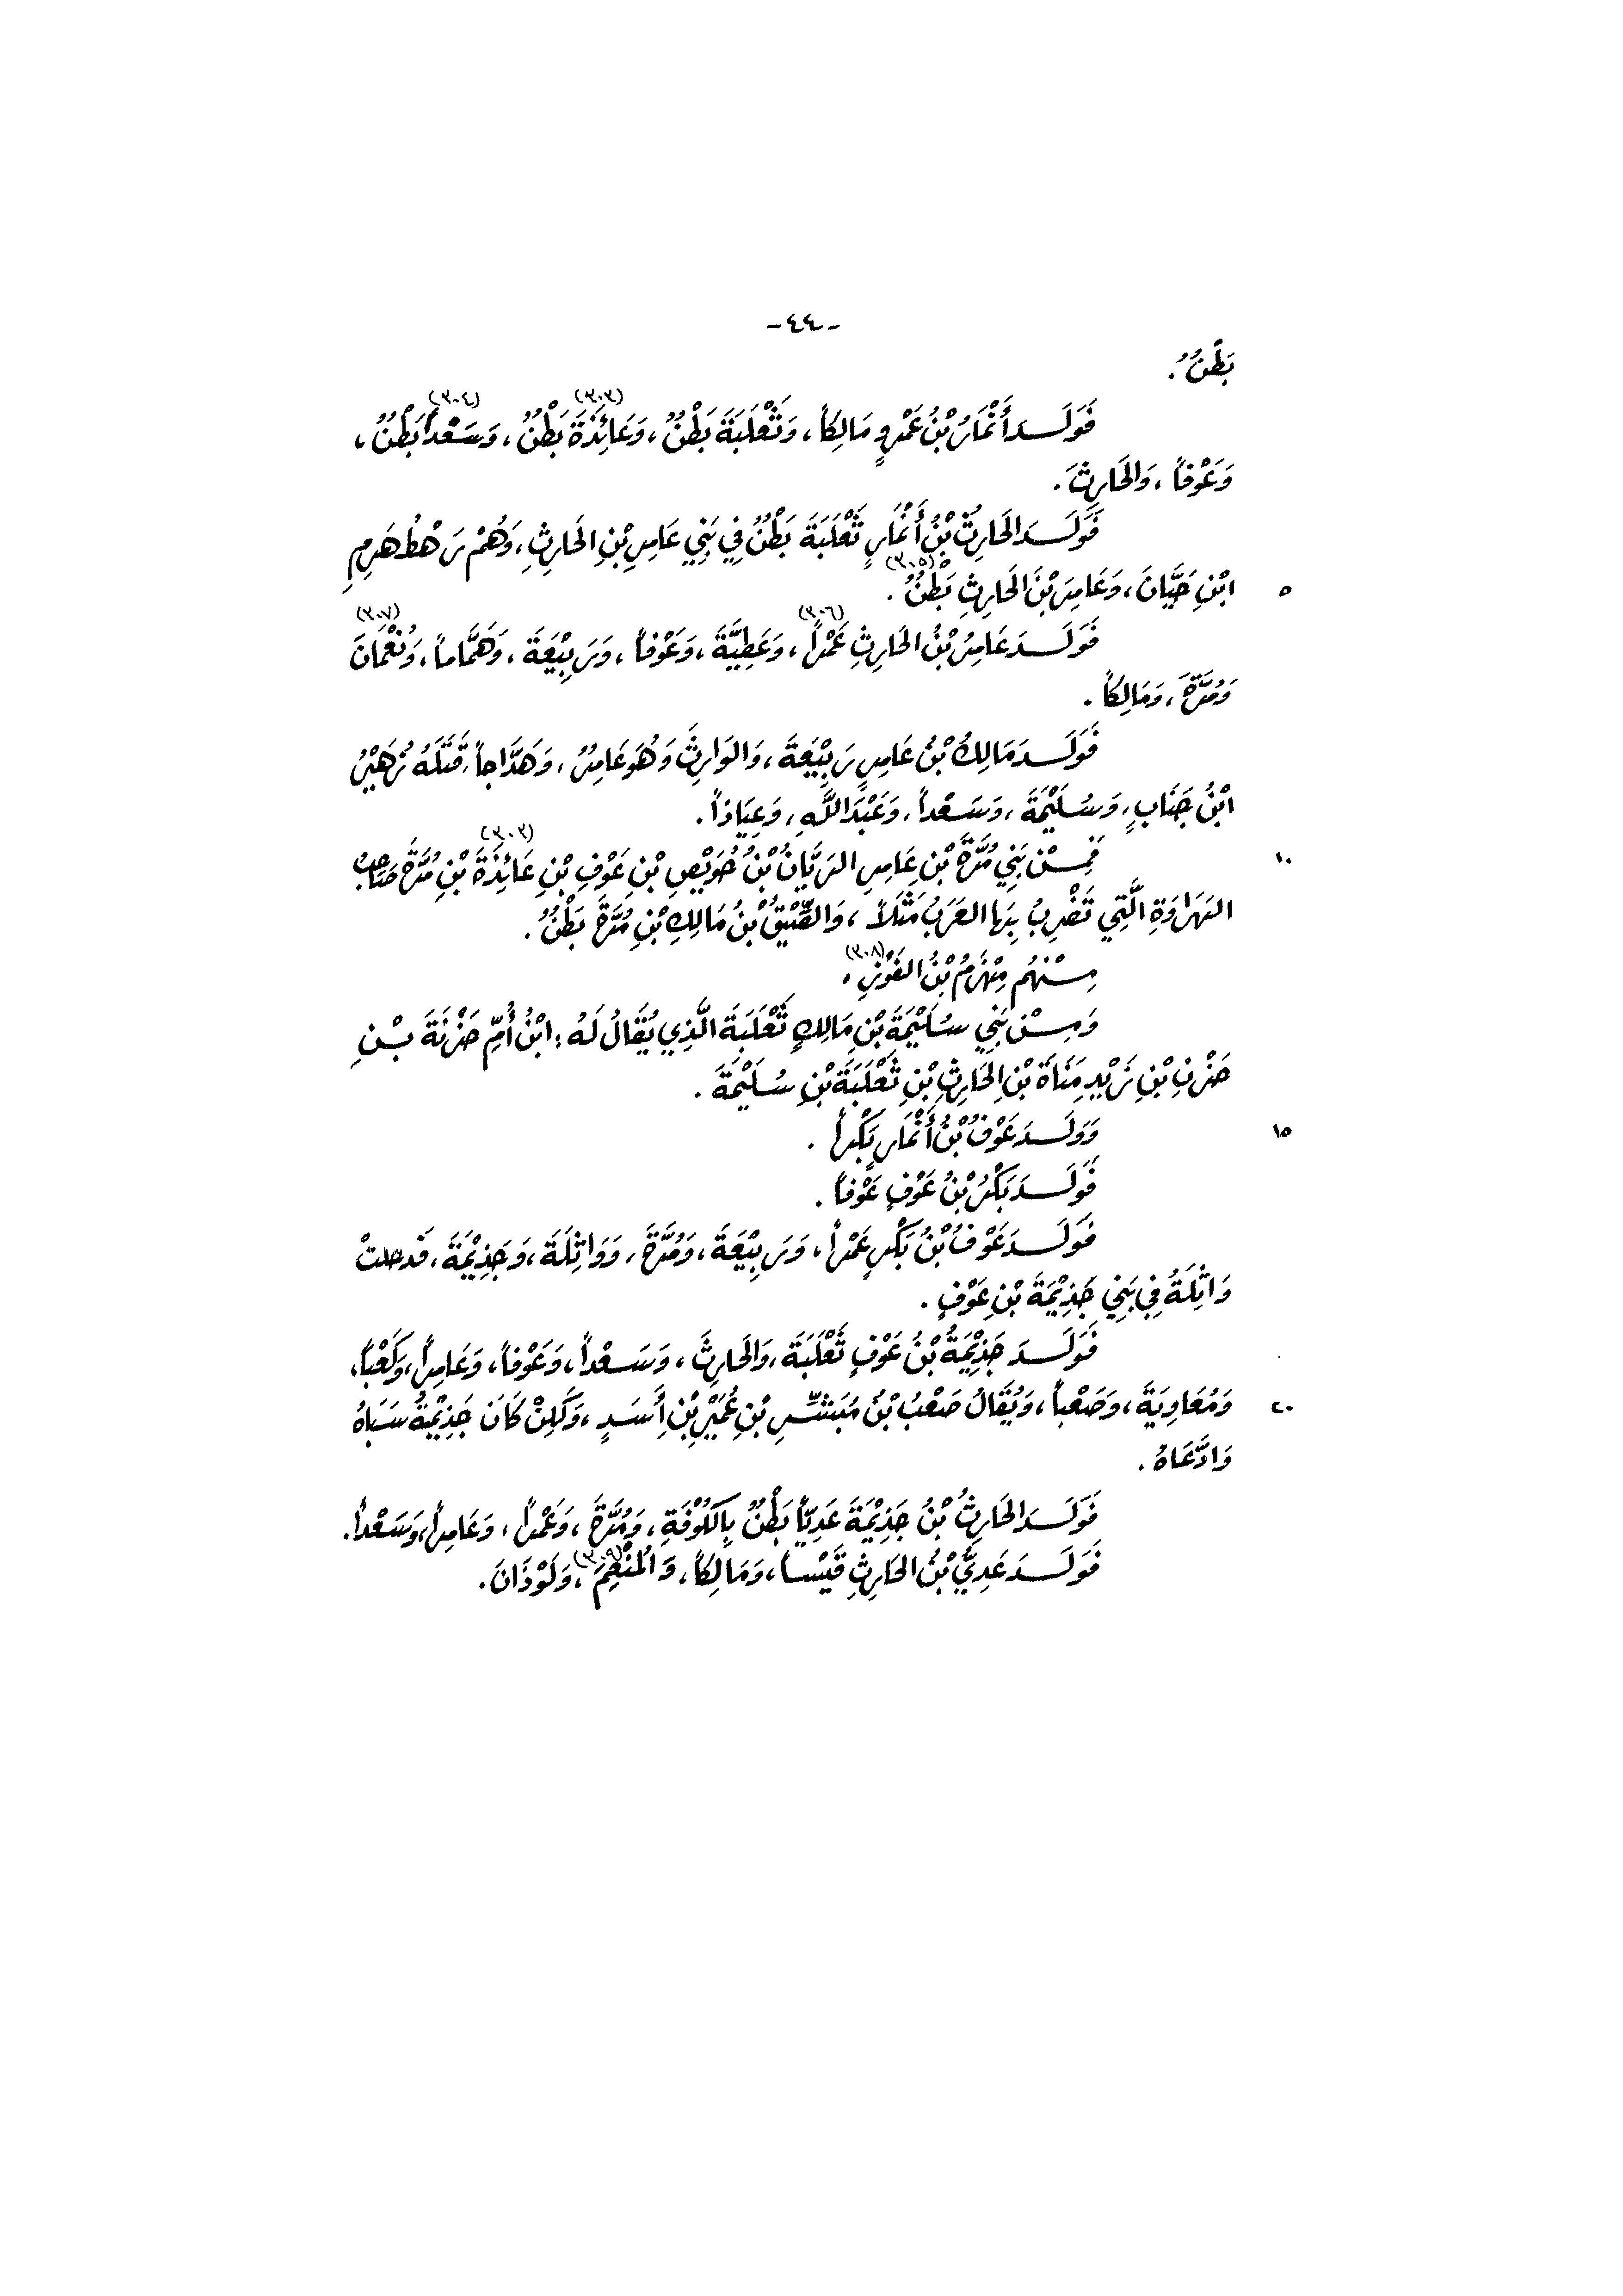 -٤٤-
بَطْنٌ.
فَوَلَدَ أَنْمَارُ بْنُ عَمْرٍو مَالِكاً، وَثَعْلَبَةَ بَطْنٌ، وَعَائِذَةَ (٣٠٣) بَطْنٌ، وَسَعْداً (٣٠٤) بَطْنٌ،
وَعَوْفاً، وَالحَارِثَ.
فَوَلَدَ الحَارِثُ بْنُ أَنْمَارٍ ثَعْلَبَةَ بَطْنٌ فِي بَنِي عَامِرِ بْنِ الحَارِثِ، وَهُمْ رَهْطُ هَرِمِ
٥ ابْنِ حَيَّانَ، وَعَامِرَ بْنَ الحَارِثِ بَطْنٌ (٣٠٥).
فَوَلَدَ عَامِرُ بْنُ الحَارِثِ عَمْراً (٣٠٦)، وَعَطِيَّةَ، وَعَوْفاً، وَرَبِيْعَةَ، وَهَمَّاماً، وَنُعْمَانَ (٣٠٧)
وَمُرَّةَ، وَمَالِكاً.
فَوَلَدَ مَالِكُ بْنُ عَامِرٍ رَبِيْعَةَ، وَالوَارِثَ وَهُوَ عَامِرٌ، وَهَدَّاجاً، قَتَلَهُ زُهَيْرُ
ابْنُ جَنَابٍ، وَسُلَيْمَةَ، وَسَعْداً، وَعَبْدَ اللَّهِ، وَعِيَاذاً.
١٠ فَمِنْ بَنِي مُرَّةَ بْنِ عَامِرِ الرَيَّانُ بْنُ حُوَيْصِ بْنِ عَوْفِ بْنِ عَائِذَةَ (٣٠٣) بْنِ مُرَّةَ صَاحِبُ
الهَرَاوَةِ الَّتِي تَضْرِبُ بِهَا العَرَبُ مَثَلاً، وَالضِّيْقُ بْنُ مَالِكِ بْنِ مُرَّةَ بَطْنٌ.
مِنْهُم مِهْزَمُ بْنُ الفَوْزِ (٣٠٨).
وَمِنْ بَنِي سُلَيْمَةَ بْنِ مَالِكٍ ثَعْلَبَةَ الَّذِي يُقَالُ لَهُ: ابْنُ أُمِّ حَزْنَةَ بْنِ
حَزْنِ بْنِ زَيْدِ مَنَاةَ بْنِ الحَارِثِ بْنِ ثَعْلَبَةَ بْنِ سُلَيْمَةَ.
١٥ وَوَلَدَ عَوْفُ بْنُ أَنْمَارٍ بَكْراً.
فَوَلَدَ بَكْرُ بْنُ عَوْفٍ عَوْفاً.
فَوَلَدَ عَوْفُ بْنُ بَكْرٍ عَمْراً، وَرَبِيْعَةَ، وَمُرَّةَ، وَوَاثِلَةَ، وَجَذِيْمَةَ، فَدخلتْ
وَاثِلَةُ فِي بَنِي جَذِيْمَةَ بْنِ عَوْفٍ.
فَوَلَدَ جَذِيْمَةُ بْنُ عَوْفٍ ثَعْلَبَةَ، وَالحَارِثَ، وَسَعْداً، وَعَوْفاً، وَعَامِراً، وَكَعْباً،
٢٠ وَمُعَاوِيَةَ، وَصَعْباً، وَيُقَالُ صَعْبُ بْنُ مُبَشِّرِ بْنِ عُمَيْرِ بْنِ أَسَدٍ، وَلَكِنْ كَانَ جَذِيْمَةُ سَبَاهُ
وَادَّعَاهُ.
فَوَلَدَ الحَارِثُ بْنُ جَذِيْمَةَ عَدِيّاً بَطْنٌ بِالكُوْفَةِ، وَمُرَّةَ، وَعَمْراً، وَعَامِراً، وَسَعْداً.
فَوَلَدَ عَدِيُّ بْنُ الحَارِثِ قَيْساً، وَمَالِكاً، وَالمُنْعِمَ (٣٠٩)، وَلَوْذَانَ.